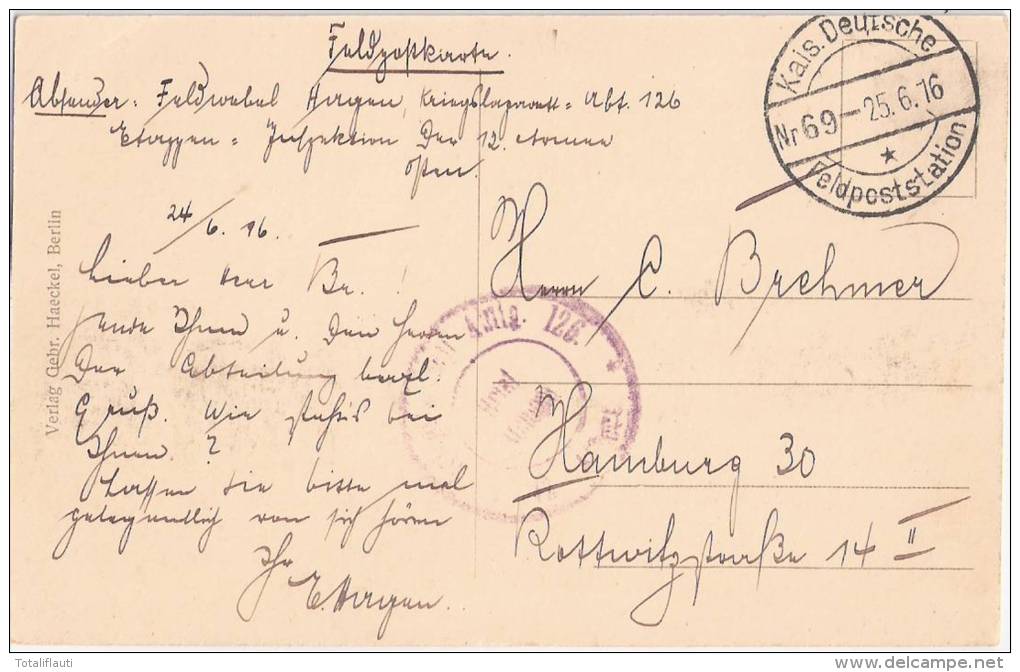 Feldpostkarte.
Absender: Feldwebel Hagen, Kriegslazarett-Abt. 126
Etappen-Inspektion der 12. Armee
Osten.
Kais. Deutsche
Nr 69 - 25.6.16
Feldpoststation
24/6. 16.
Lieber Herr Br.!
sende Ihnen u. den Herren
der Abteilung herzl.
Gruß. Wie steht's bei
Ihnen?
Lassen Sie bitte mal
gelegentlich von sich hören
Ihr
E Hagen.
Herrn C. Brehmer
Hamburg 30
Kottwitzstraße 14 II
126.
Verlag Gebr. Haeckel, Berlin
Totaliflauti
delcampe.net